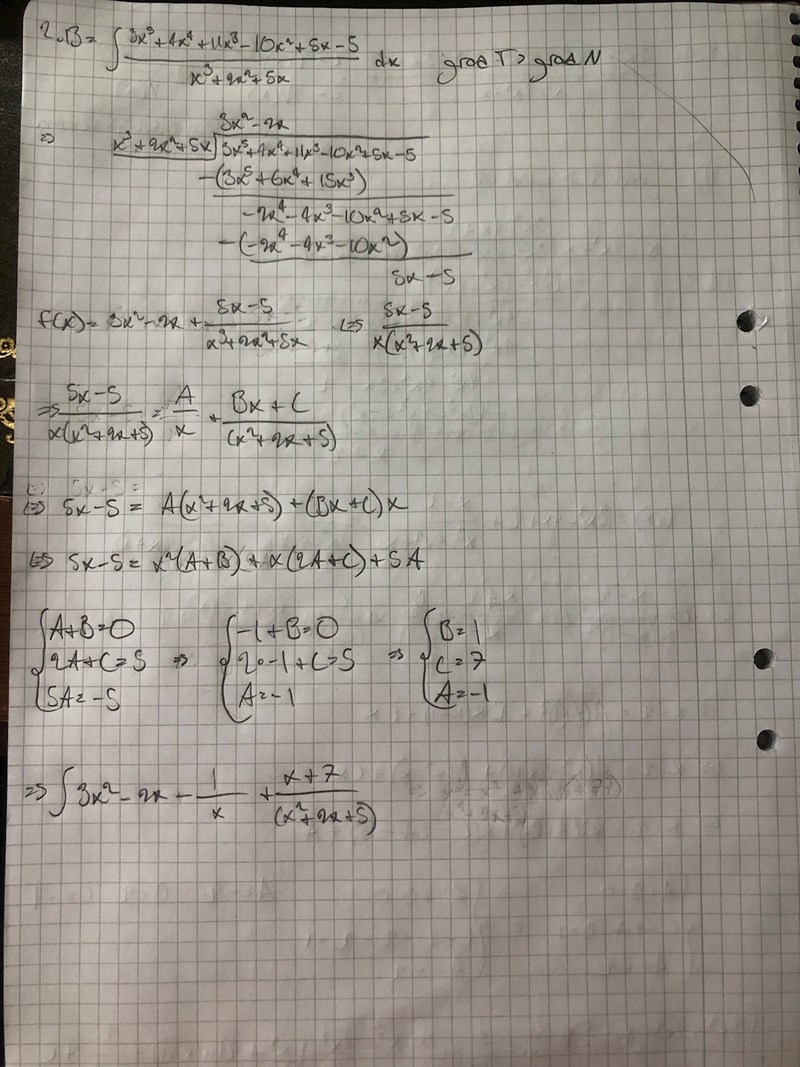 2.B = ∫ (3x⁵+4x⁴+11x³-10x²+5x-5)/(x³+2x²+5x) dx grad T > grad N
3x²-2x
⇒ x³+2x²+5x | 3x⁵+4x⁴+11x³-10x²+5x-5
-(3x⁵+6x⁴+15x³)
-2x⁴-4x³-10x²+5x-5
-(-2x⁴-4x³-10x²)
5x-5
f(x) = 3x²-2x + (5x-5)/(x³+2x²+5x) ⇔ (5x-5)/(x(x²+2x+5))
⇒ (5x-5)/(x(x²+2x+5)) = A/x + (Bx+C)/(x²+2x+5)
⇔ 5x-5 = A(x²+2x+5)+(Bx+C)x
⇔ 5x-5 = x²(A+B)+x(2A+C)+5A
{A+B=0 {-1+B=0 {B=1
{2A+C=5 ⇒ {2·-1+C=5 ⇒ {C=7
{5A=-5 {A=-1 {A=-1
⇒ ∫ 3x²-2x - 1/x + (x+7)/(x²+2x+5)